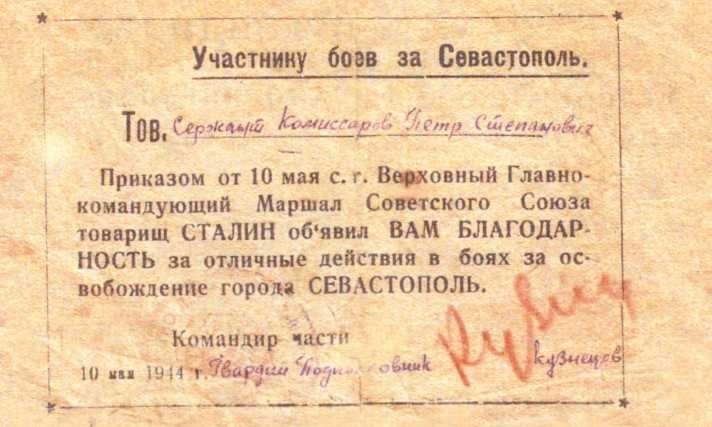 Участнику боев за Севастополь.
Тов. Сержант Комиссаров Петр Степанович
Приказом от 10 мая с. г. Верховный Главно-
командующий Маршал Советского Союза
товарищ СТАЛИН об‘явил ВАМ БЛАГОДАР-
НОСТЬ за отличные действия в боях за ос-
вобождение города СЕВАСТОПОЛЬ.
Командир части
10 мая 1944 г. Гвардии Подполковник Кузнецов